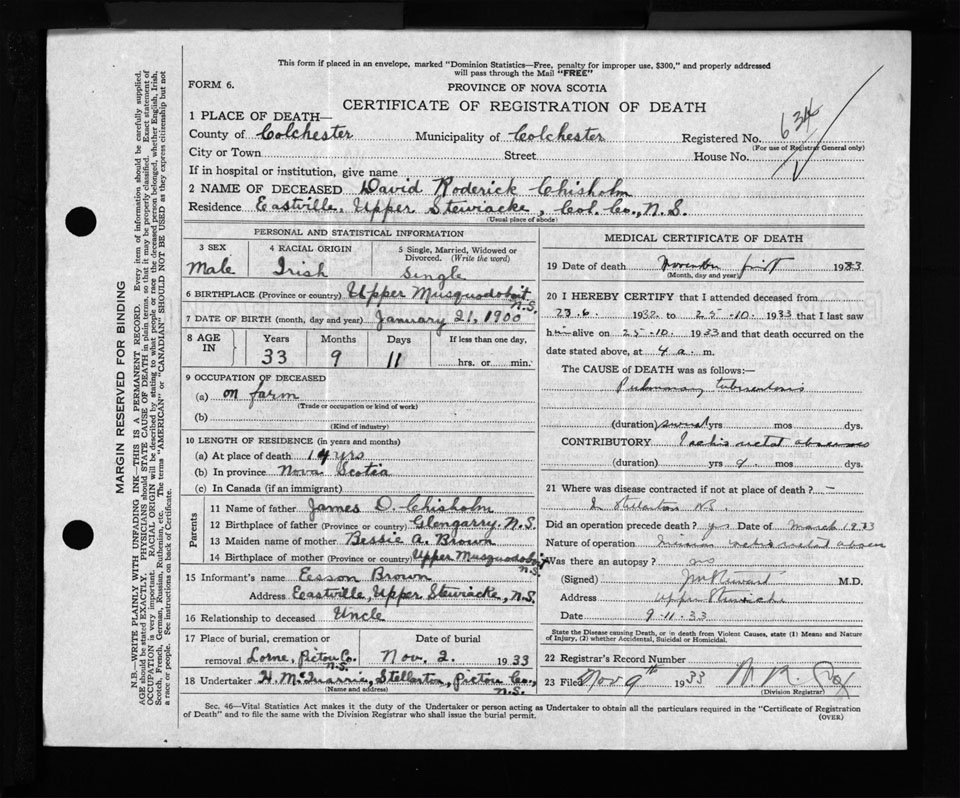 This form if placed in an envelope, marked "Dominion Statistics—Free, penalty for improper use, $300," and properly addressed
will pass through the Mail "FREE"
FORM 6.
PROVINCE OF NOVA SCOTIA
CERTIFICATE OF REGISTRATION OF DEATH
1 PLACE OF DEATH—
County of Colchester Municipality of Colchester Registered No. 634
(For use of Registrar General only)
City or Town Street House No.
If in hospital or institution, give name
2 NAME OF DECEASED David Roderick Chisholm
Residence Eastville, Upper Stewiacke, Col. Co., N.S.
(Usual place of abode)
PERSONAL AND STATISTICAL INFORMATION
3 SEX
Male
4 RACIAL ORIGIN
Irish
5 Single, Married, Widowed or
Divorced. (Write the word)
Single
6 BIRTHPLACE (Province or country) Upper Musquodoboit
N.S.
7 DATE OF BIRTH (month, day and year) January 21, 1900
8 AGE
IN
Years Months Days If less than one day,
33 9 11 hrs. or min.
9 OCCUPATION OF DECEASED
(a) on farm
(Trade or occupation or kind of work)
(b)
(Kind of industry)
10 LENGTH OF RESIDENCE (in years and months)
(a) At place of death 14 yrs
(b) In province Nova Scotia
(c) In Canada (if an immigrant)
Parents
11 Name of father James D. Chisholm
12 Birthplace of father (Province or country) Glengarry N.S.
13 Maiden name of mother Bessie A. Brown
14 Birthplace of mother (Province or country) Upper Musquodoboit
N.S.
15 Informant's name Eesson Brown
Address Eastville, Upper Stewiacke, N.S.
16 Relationship to deceased Uncle
17 Place of burial, cremation or Date of burial
removal Lorne, Pictou Co. Nov. 2. 1933
N.S.
18 Undertaker H. McQuarrie, Stellarton, Pictou Co.,
(Name and address) N.S.
MEDICAL CERTIFICATE OF DEATH
19 Date of death November first 1933
(Month, day and year)
20 I HEREBY CERTIFY that I attended deceased from
23.6. 1932 to 25.10. 1933 that I last saw
him alive on 25.10. 1933 and that death occurred on the
date stated above, at 4 a. m.
The CAUSE OF DEATH was as follows:—
Pulmonary tuberculosis
(duration) several yrs mos dys.
CONTRIBUTORY Ischio rectal abscess
(duration) yrs 9. mos dys.
21 Where was disease contracted if not at place of death? —
In Stellarton N.S.
Did an operation precede death? yes Date of March 1933
Nature of operation Incision ischio rectal abscess
Was there an autopsy? no
(Signed) M.D.
Address Upper Stewiacke
Date 9.11.33
State the Disease causing Death, or in death from Violent Causes, state (1) Means and Nature
of Injury, (2) whether Accidental, Suicidal or Homicidal.
22 Registrar's Record Number
23 Filed Nov 9th 1933
(Division Registrar)
Sec. 46—Vital Statistics Act makes it the duty of the Undertaker or person acting as Undertaker to obtain all the particulars required in the "Certificate of Registration
of Death" and to file the same with the Division Registrar who shall issue the burial permit.
(OVER)
MARGIN RESERVED FOR BINDING
N.B.—WRITE PLAINLY WITH UNFADING INK—THIS IS A PERMANENT RECORD. Every item of information should be carefully supplied.
AGE should be stated EXACTLY. PHYSICIANS should STATE CAUSE OF DEATH in plain terms, so that it may be properly classified. Exact statement of
OCCUPATION is very important. RACIAL ORIGIN will be described by stating to what people or race the deceased person belonged, whether English, Irish,
Scotch, French, German, Russian, Ruthenian, etc. The terms "AMERICAN" or "CANADIAN" SHOULD NOT BE USED as they express citizenship but not
a race or people. See instructions on back of Certificate.